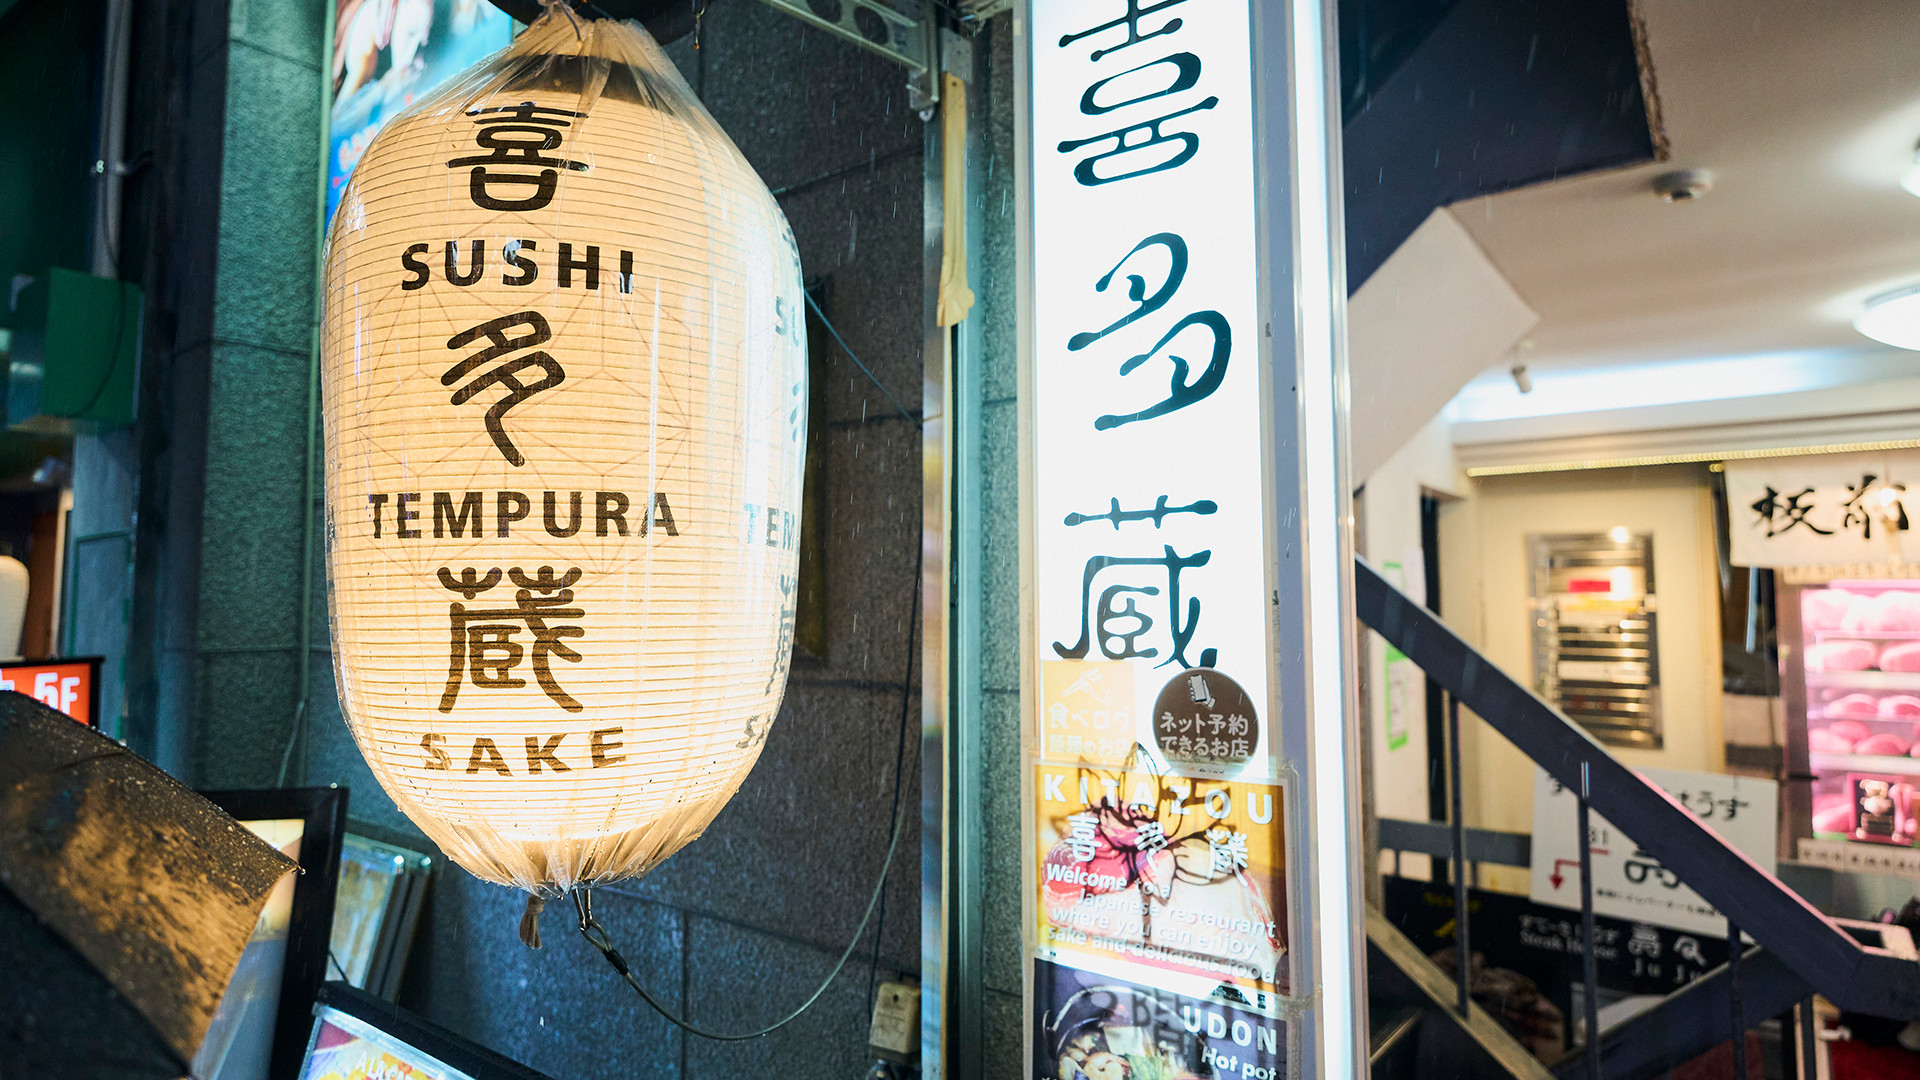 喜
SUSHI
多
TEMPURA
蔵
SAKE
喜多蔵
食べログ
話題のお店
ネット予約
できるお店
KITAZOU
喜多蔵
Welcome to a
Japanese restaurant
where you can enjoy
sake and delicious food
UDON
Hot pot
板前
5F
Steak House
寿
Ju Ju